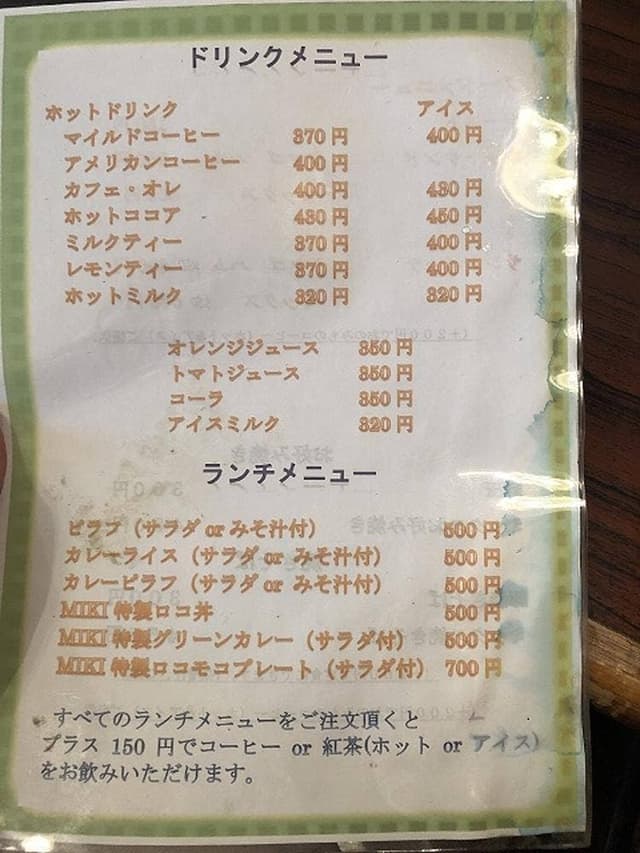 ドリンクメニュー
ホットドリンク アイス
マイルドコーヒー 370円 400円
アメリカンコーヒー 400円
カフェ・オレ 400円 430円
ホットココア 430円 450円
ミルクティー 370円 400円
レモンティー 370円 400円
ホットミルク 320円 320円
オレンジジュース 350円
トマトジュース 350円
コーラ 350円
アイスミルク 320円
ランチメニュー
ピラフ（サラダ or みそ汁付） 500円
カレーライス（サラダ or みそ汁付） 500円
カレーピラフ（サラダ or みそ汁付） 500円
MIKI 特製ロコ丼 500円
MIKI 特製グリーンカレー（サラダ付） 500円
MIKI 特製ロコモコプレート（サラダ付） 700円
すべてのランチメニューをご注文頂くと
プラス 150 円でコーヒー or 紅茶(ホット or アイス)
をお飲みいただけます。